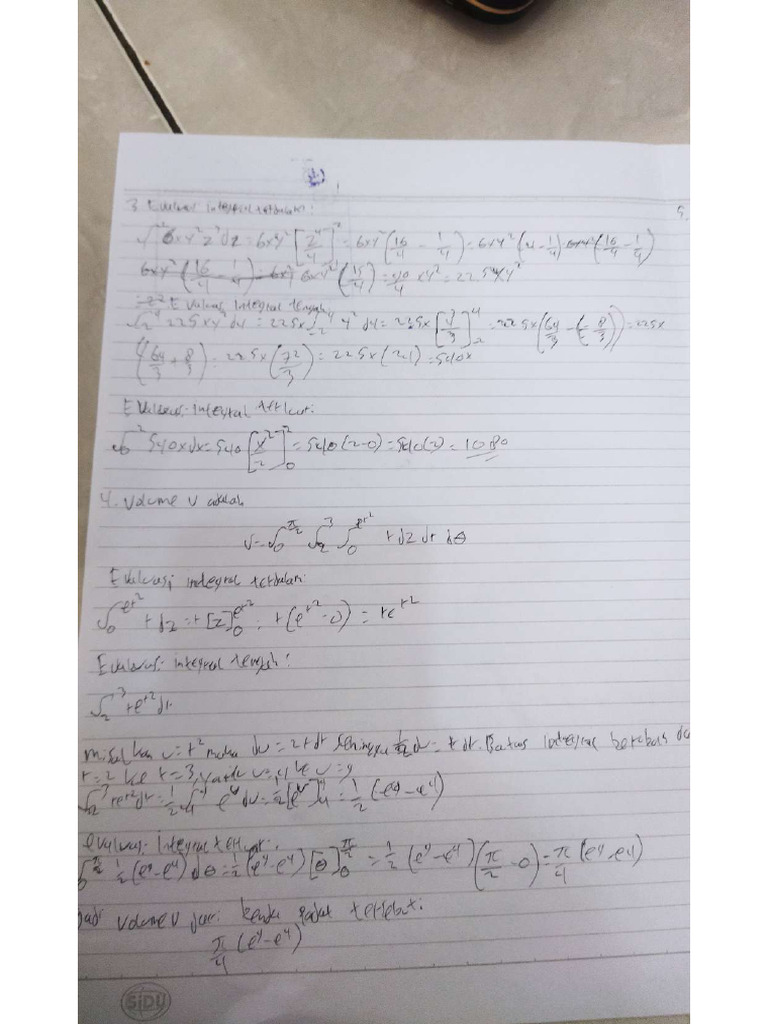 3. Evaluasi integral terdalam:
∫₁² 6xy²z³dz = 6xy² [z⁴/4]₁² = 6xy² (16/4 - 1/4) = 6xy² (4 - 1/4) (16/4 - 1/4)
6xy² (15/4) = 90/4 xy² = 22.5xy²
Evaluasi integral tengah
∫₋₂⁴ 22.5xy² dy = 22.5x ∫₋₂⁴ y² dy = 22.5x [y³/3]₋₂⁴ = 22.5x (64/3 - (-8/3)) = 22.5x
(64/3 + 8/3) = 22.5x (72/3) = 22.5x (24) = 540x
Evaluasi integral terluar:
∫₀² 540x dx = 540 [x²/2]₀² = 540 (2-0) = 540(2) = 1080
4. Volume V adalah
V = ∫₀^(π/2) ∫₂³ ∫₀^(e^(r²)) r dz dr dθ
Evaluasi integral terdalam:
∫₀^(e^(r²)) r dz = r [z]₀^(e^(r²)) = r (e^(r²) - 0) = re^(r²)
Evaluasi integral tengah:
∫₂³ re^(r²) dr
misalkan u = r² maka du = 2r dr sehingga 1/2 du = r dr. Batas integrasi berubah
r = 2 ke r = 3, yaitu u = 4 ke u = 9
∫₂³ re^(r²) dr = 1/2 ∫₄⁹ e^u du = 1/2 [e^u]₄⁹ = 1/2 (e⁹ - e⁴)
evaluasi integral terluar:
∫₀^(π/2) 1/2 (e⁹ - e⁴) dθ = 1/2 (e⁹ - e⁴) [θ]₀^(π/2) = 1/2 (e⁹ - e⁴) (π/2 - 0) = π/4 (e⁹ - e⁴)
Jadi volume V dari benda padat tersebut:
π/4 (e⁹ - e⁴)
SiDU